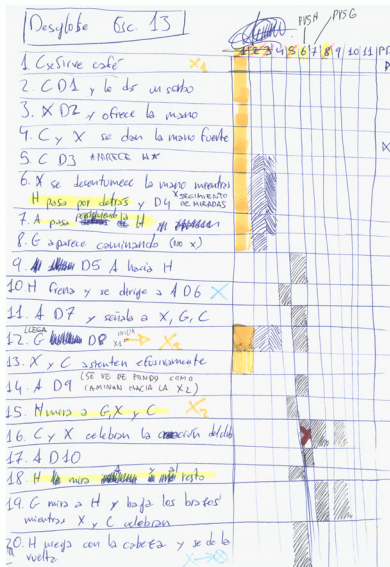 Desglobe Esc. 13
PVSH PVSG
1 2 3 4 5 6 7 8 9 10 11 PT.
1. C se sirve café X1
2. C D1 y le da un sorbo
3. X D2 y ofrece la mano
4. C y X se dan la mano fuerte
5. C D3 APARECE H
6. X se desentumece la mano mientras
H pasa por detrás y D4 X SEGIMIENTO DE MIRADAS
7. A pasa persiguiendo a H
8. G aparece caminando (NO X)
9. D5 A hacia H
10. H frena y se dirige a A D6 X
11. A D7 y señala a X, G, C
12. G LLEGA D8 INICIA X1 → X2
13. X y C asienten efusivamente
14. A D9 (SE VE DE FONDO COMO
CAMINAN HACIA LA X2)
15. H mira a G, X y C X2
16. C y X celebran la creación del club
17. A D10
18. H mira A al resto
19. G mira a H y baja los brazos
mientras X y C celebran
20. H niega con la cabeza y se da la
vuelta X → X